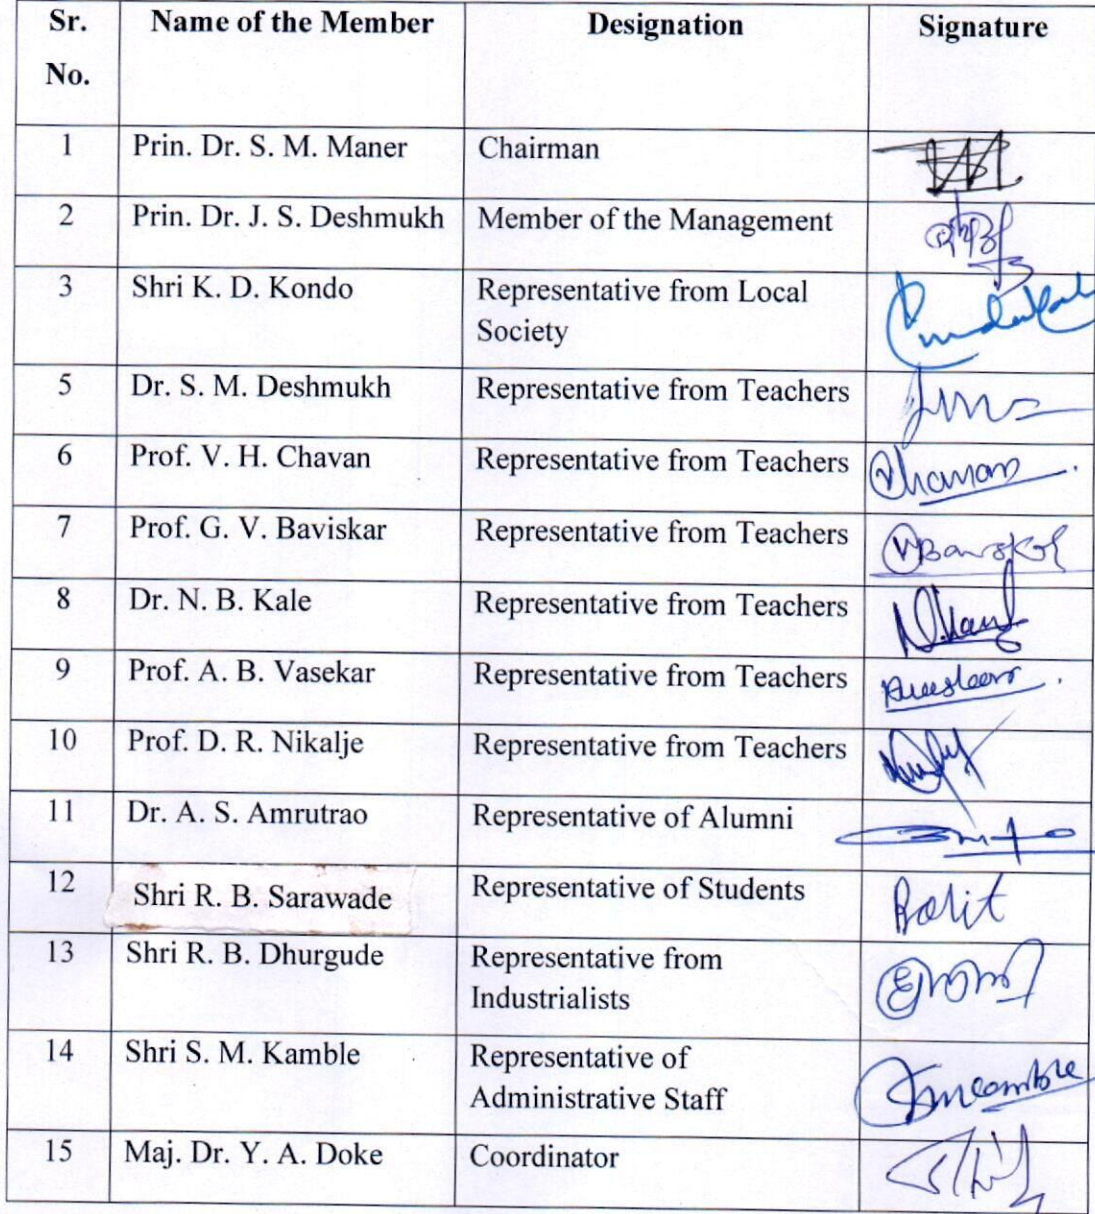 Sr. No. Name of the Member Designation Signature
1 Prin. Dr. S. M. Maner Chairman
2 Prin. Dr. J. S. Deshmukh Member of the Management
3 Shri K. D. Kondo Representative from Local
Society
5 Dr. S. M. Deshmukh Representative from Teachers
6 Prof. V. H. Chavan Representative from Teachers
7 Prof. G. V. Baviskar Representative from Teachers
8 Dr. N. B. Kale Representative from Teachers
9 Prof. A. B. Vasekar Representative from Teachers
10 Prof. D. R. Nikalje Representative from Teachers
11 Dr. A. S. Amrutrao Representative of Alumni
12 Shri R. B. Sarawade Representative of Students
13 Shri R. B. Dhurgude Representative from
Industrialists
14 Shri S. M. Kamble Representative of
Administrative Staff
15 Maj. Dr. Y. A. Doke Coordinator